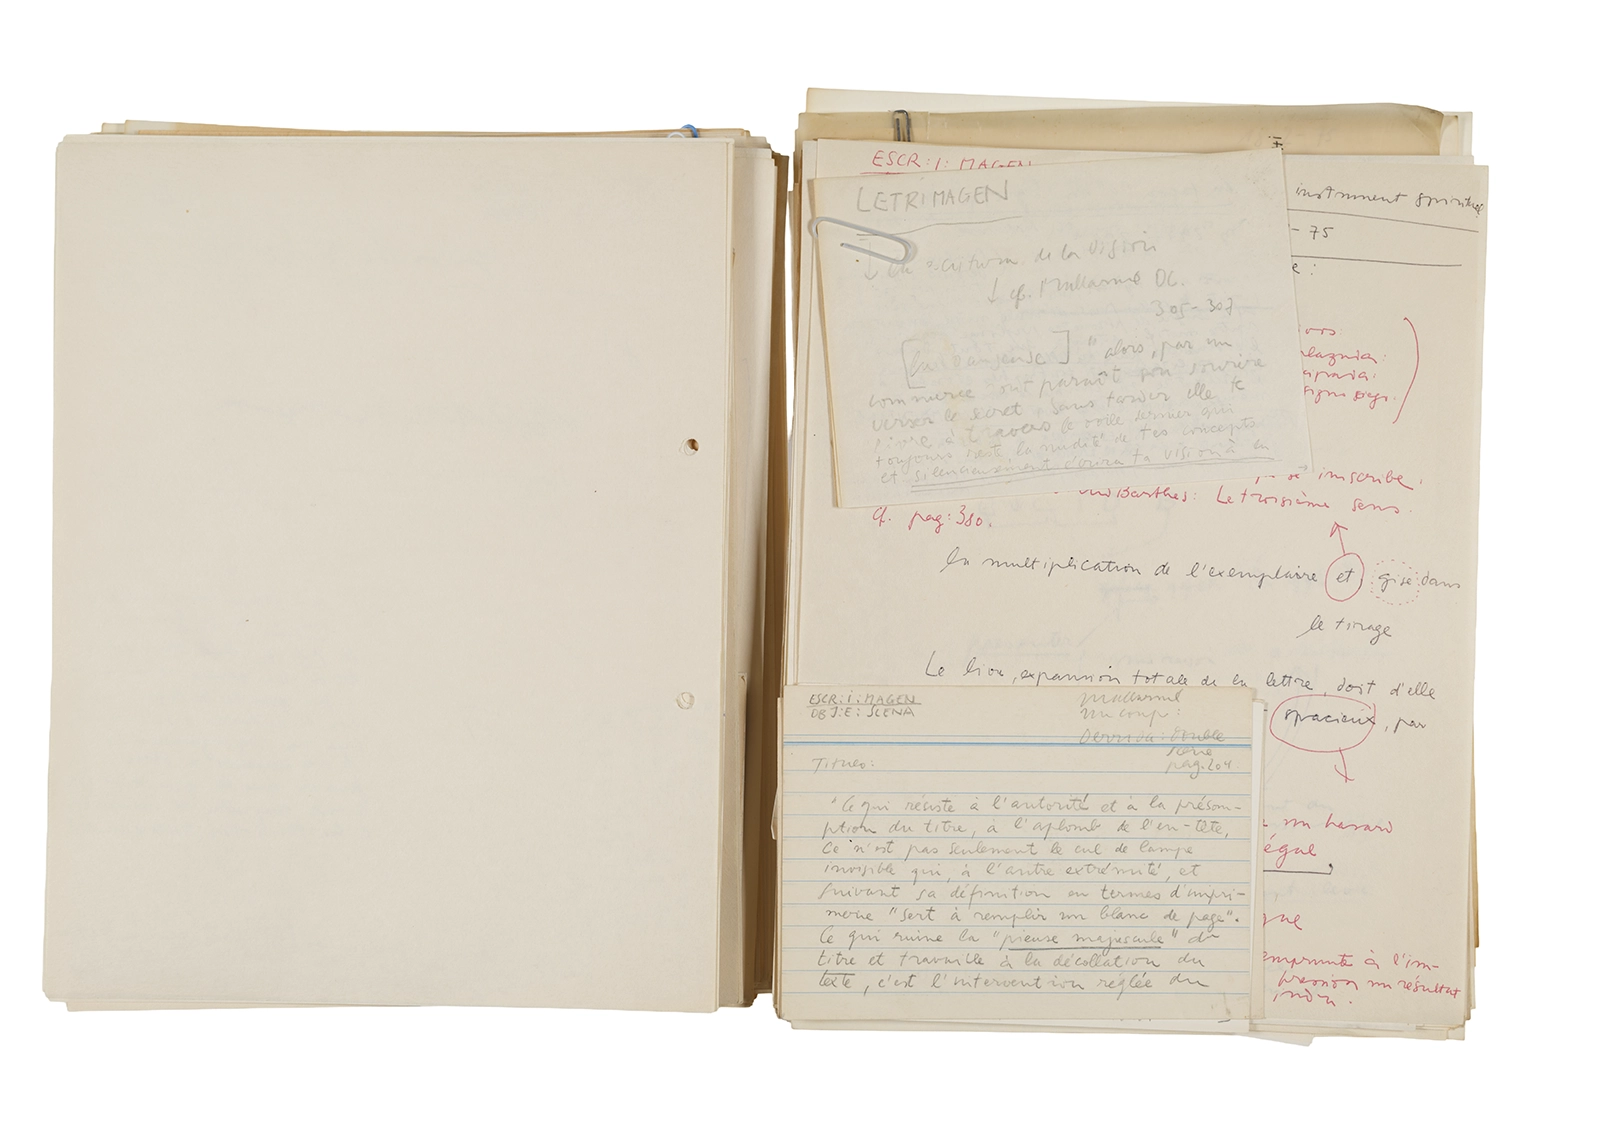 ESCR:I:MAGEN
LETRIMAGEN
instrument spirituel
- 75
e:
de la visión
↓ cf. Mallarmé OC.
305-307
[la danseuse] "alors, par un
commerce dont paraît son sourire
verser le secret, sans tarder elle te
livre à travers le voile dernier qui
toujours reste la nudité de tes concepts
et silencieusement écrira ta vision à la
se inscribe.
Barthes: Le troisième sens.
cf. pag: 380.
la multiplication de l'exemplaire et gise dans
le tirage
Le livre, expansion totale de la lettre, doit d'elle
spacieux, par
un hasard
égue
gue
emprunte à l'im-
pression un résultat
indu.
ESCR:I:MAGEN
OBJ:E:SCENA
Mallarmé
un coup:
Derrida: Double
scène
pag. 204
Titres:
"Ce qui résiste à l'autorité et à la présom-
ption du titre, à l'aplomb de l'en-tête,
ce n'est pas seulement le cul de lampe
invisible qui, à l'autre extrémité, et
suivant sa définition en termes d'impri-
merie "sert à remplir un blanc de page".
Ce qui ruine la "pieuse majuscule" du
titre et travaille à la décollation du
texte, c'est l'intervention réglée du